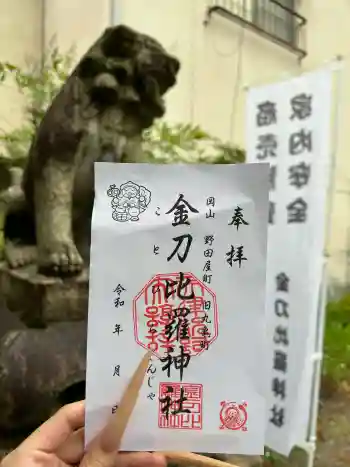 奉拝
岡山 野田屋町 旧丸亀町
金刀比羅神社
ことひら
んじゃ
令和 年 月 日
家内安全
商売繁盛
金刀比羅神社